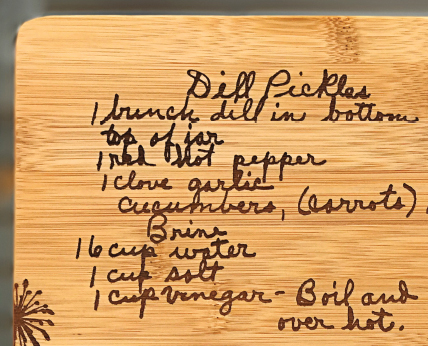 Dill Pickles
1 bunch dill in bottom
top of jar
1 red hot pepper
1 clove garlic
cucumbers, (carrots),
Brine
16 cup water
1 cup salt
1 cup vinegar - Boil and
over hot.